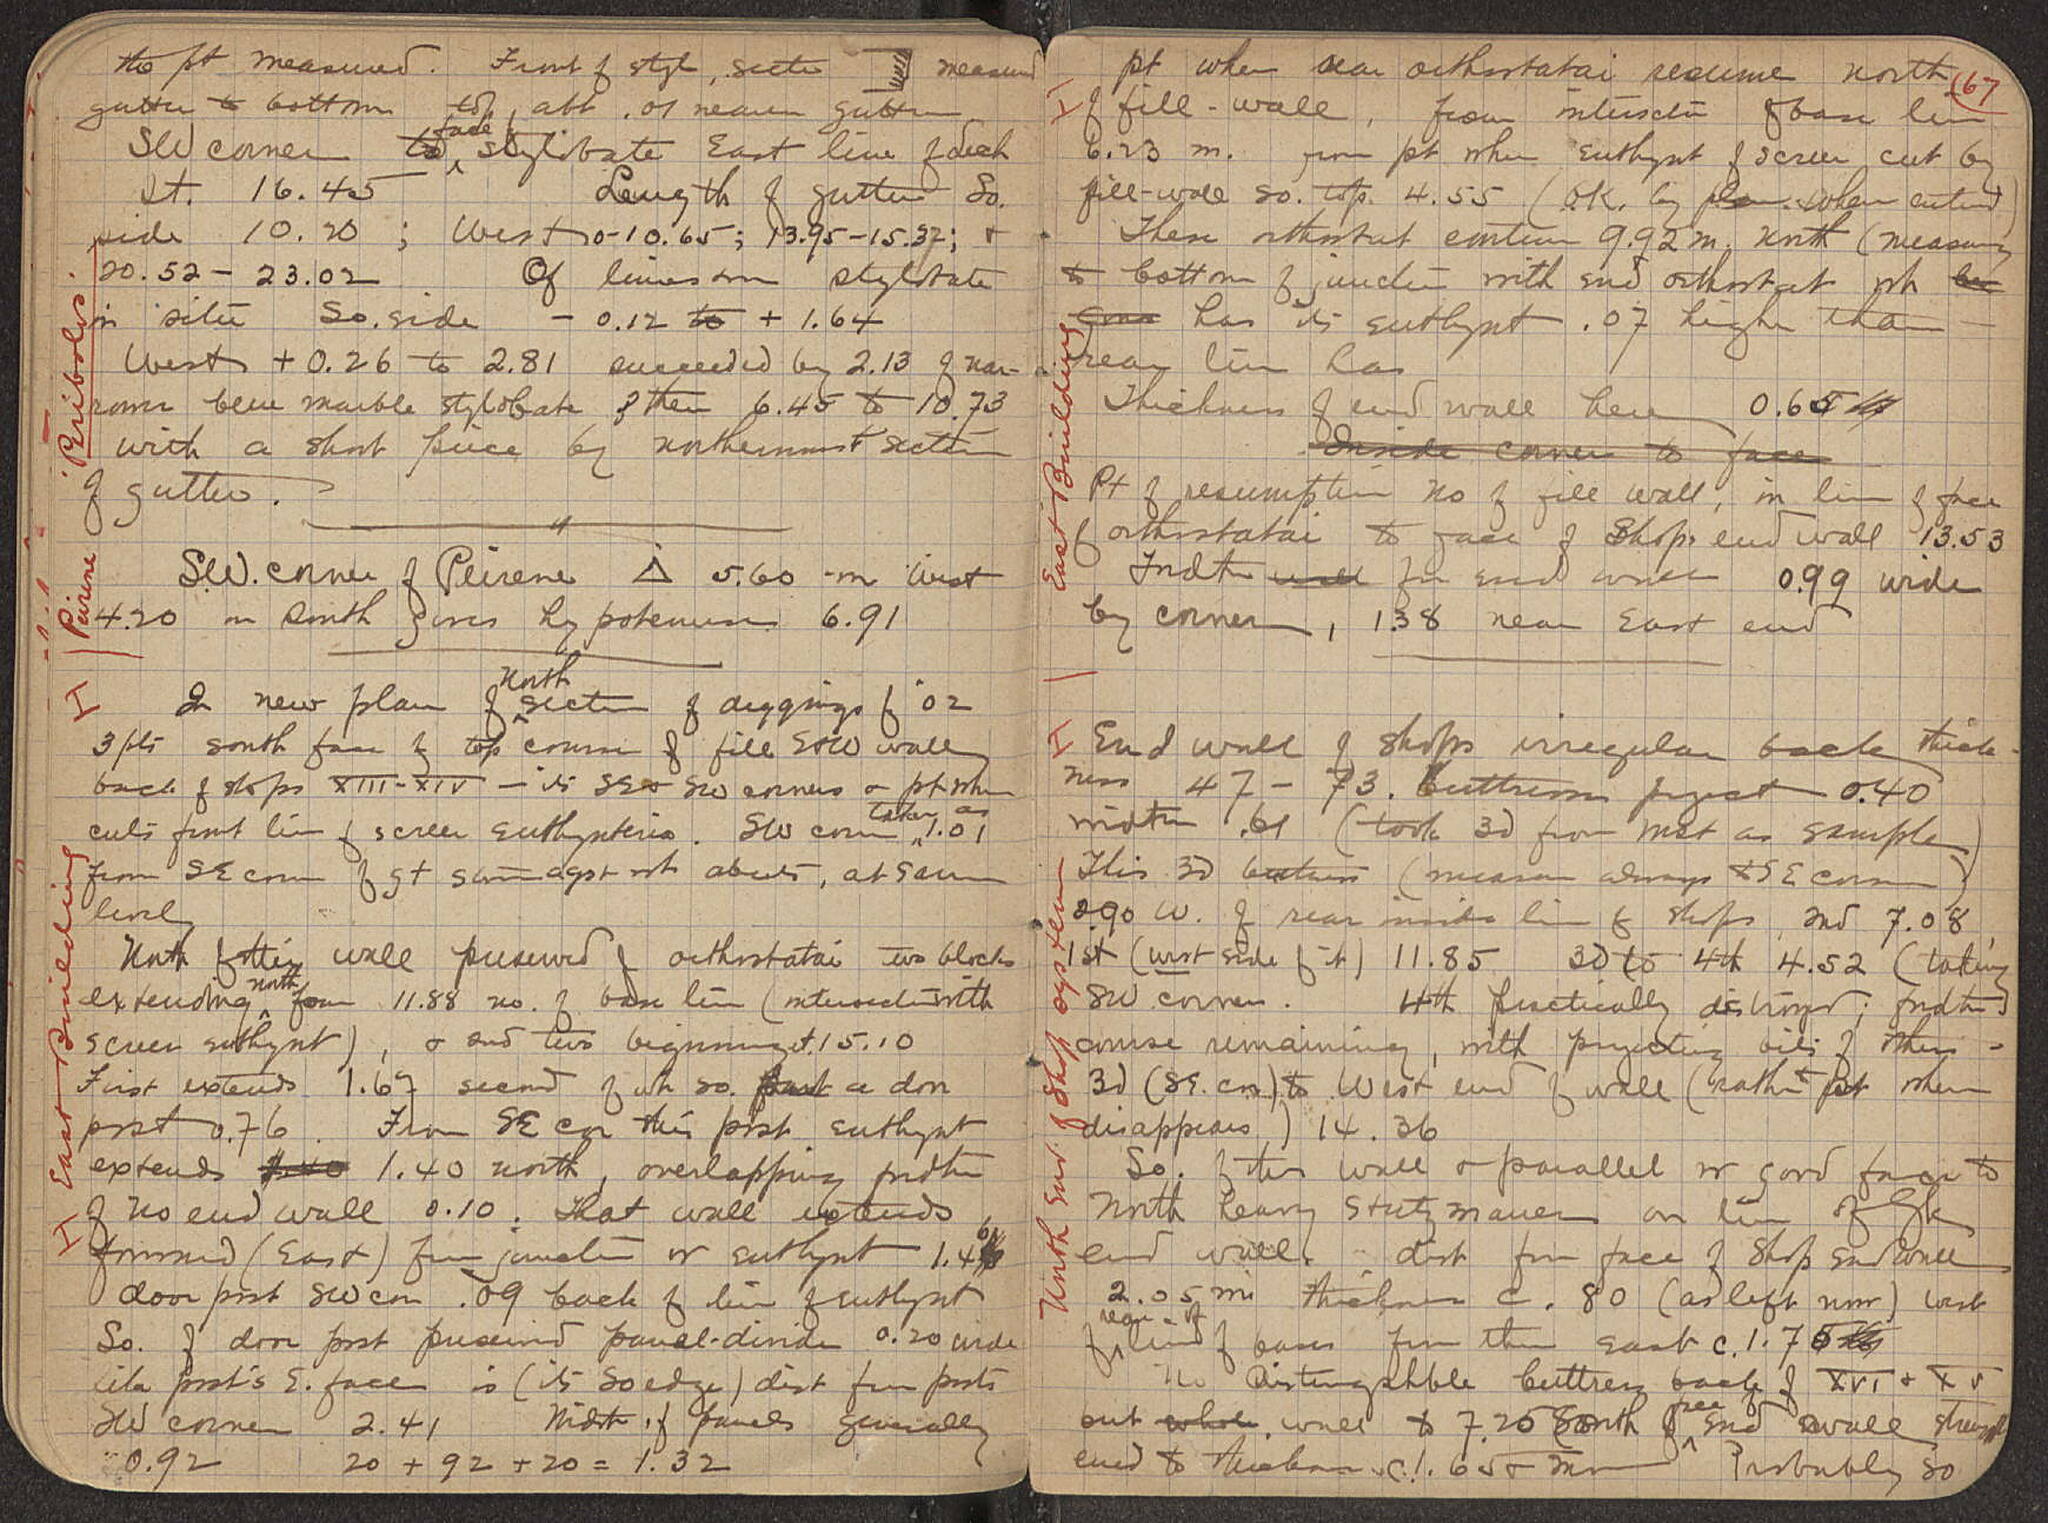 the pt measured. Front of styl, secte measured
gutter to bottom top, abt .01 nearer gutter
SW corner face stylobate East line of deck
St. 16.45 Length of gutter So.
side 10.20; West 0-10.65; 13.95-15.37; &
20.52 - 23.02 Of limestone stylobate
in situ So. side - 0.12 to + 1.64
West + 0.26 to 2.81 succeeded by 2.13 of nar-
rower blue marble stylobate & then 6.45 to 10.73
with a short piece by northernmost section
of gutter.
Peribolos.
Peirene
S.W. corner of Peirene Δ 5.60 m West
4.20 m South gives hypotenuse 6.91
In new plan of North section of diggings of '02
3 pts south face of top course of fill E&W wall
back of shops XIII-XIV - its SE & SW corners & pt when
cuts front line of screen euthynteria. SW corn taken as 1.01
from SE corn of st same agst wh abuts, at same
level
North of this wall preserved of orthostatai two blocks
extending north from 11.88 no. of base line (intersection with
screen euthynt), & and two beginning at 15.10
First extends 1.67 second of wh so. part a door
post 0.76. From SE cor this post euthynt
extends 1.40 north, overlapping fndtn
of No end wall 0.10. That wall extends
forward (East) from junction w euthynt 1.46
door post SW cor .09 back of line of euthynt
So. of door post preserved panel-divider 0.20 wide
like post's E. face is (its So edge) dist from posts
SW corner 2.41 Width of panels generally
0.92 20 + 92 + 20 = 1.32
East Building
67
pt when rear orthostatai resume north
of fill-wall, from intersectn of base line
6.23 m. from pt when euthynt of screen cut by
fill-wall so. top. 4.55 (O.K. by plan when entered)
These orthostat continue 9.92 m. north (measuring
to bottom of junction with end orthostat wh
has its euthynt .07 higher than
rear line has
Thickness of end wall here 0.65
inside corner to face
Pt of resumption no of fill wall, in line of face
of orthostatai to face of Shops end wall 13.53
Fndtn wall for end wall 0.99 wide
by corner, 1.38 near East end
East Building
End wall of shops irregular back thick-
ness 47 - 73. Buttresses project 0.40
width .61 (took 3d from west as sample)
This 3d buttress (measure always to SE corner)
2.90 W. of rear inside line of shops, 2nd 7.08,
1st (west side of it) 11.85 3d to 4th 4.52 (taking
SW corner. 4th practically destroyed; fndtn
course remaining, with projecting bits of others -
3d (SE. cor.) to West end of wall (rather pt when
disappears) 14.36
So. of this wall & parallel w good face to
North heavy Stutzmauer on line of Gk
end wall. dist from face of Shop end wall
2.05 m thickness c. .80 (as left now) west
of rear line of bases from then east c. 1.75
No distinguishable buttress back of XVI & XV
but whole wall to 7.25 South of free end wall strength
ened to thickness c. 1.65 & more Probably so
North End of Shop system